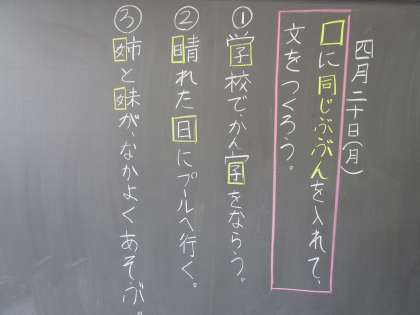 四月二十日(月)
□に同じぶぶんを入れて、
文をつくろう。
①学校でかん字をならう。
②晴れた日にプールへ行く。
③姉と妹が、なかよくあそぶ。